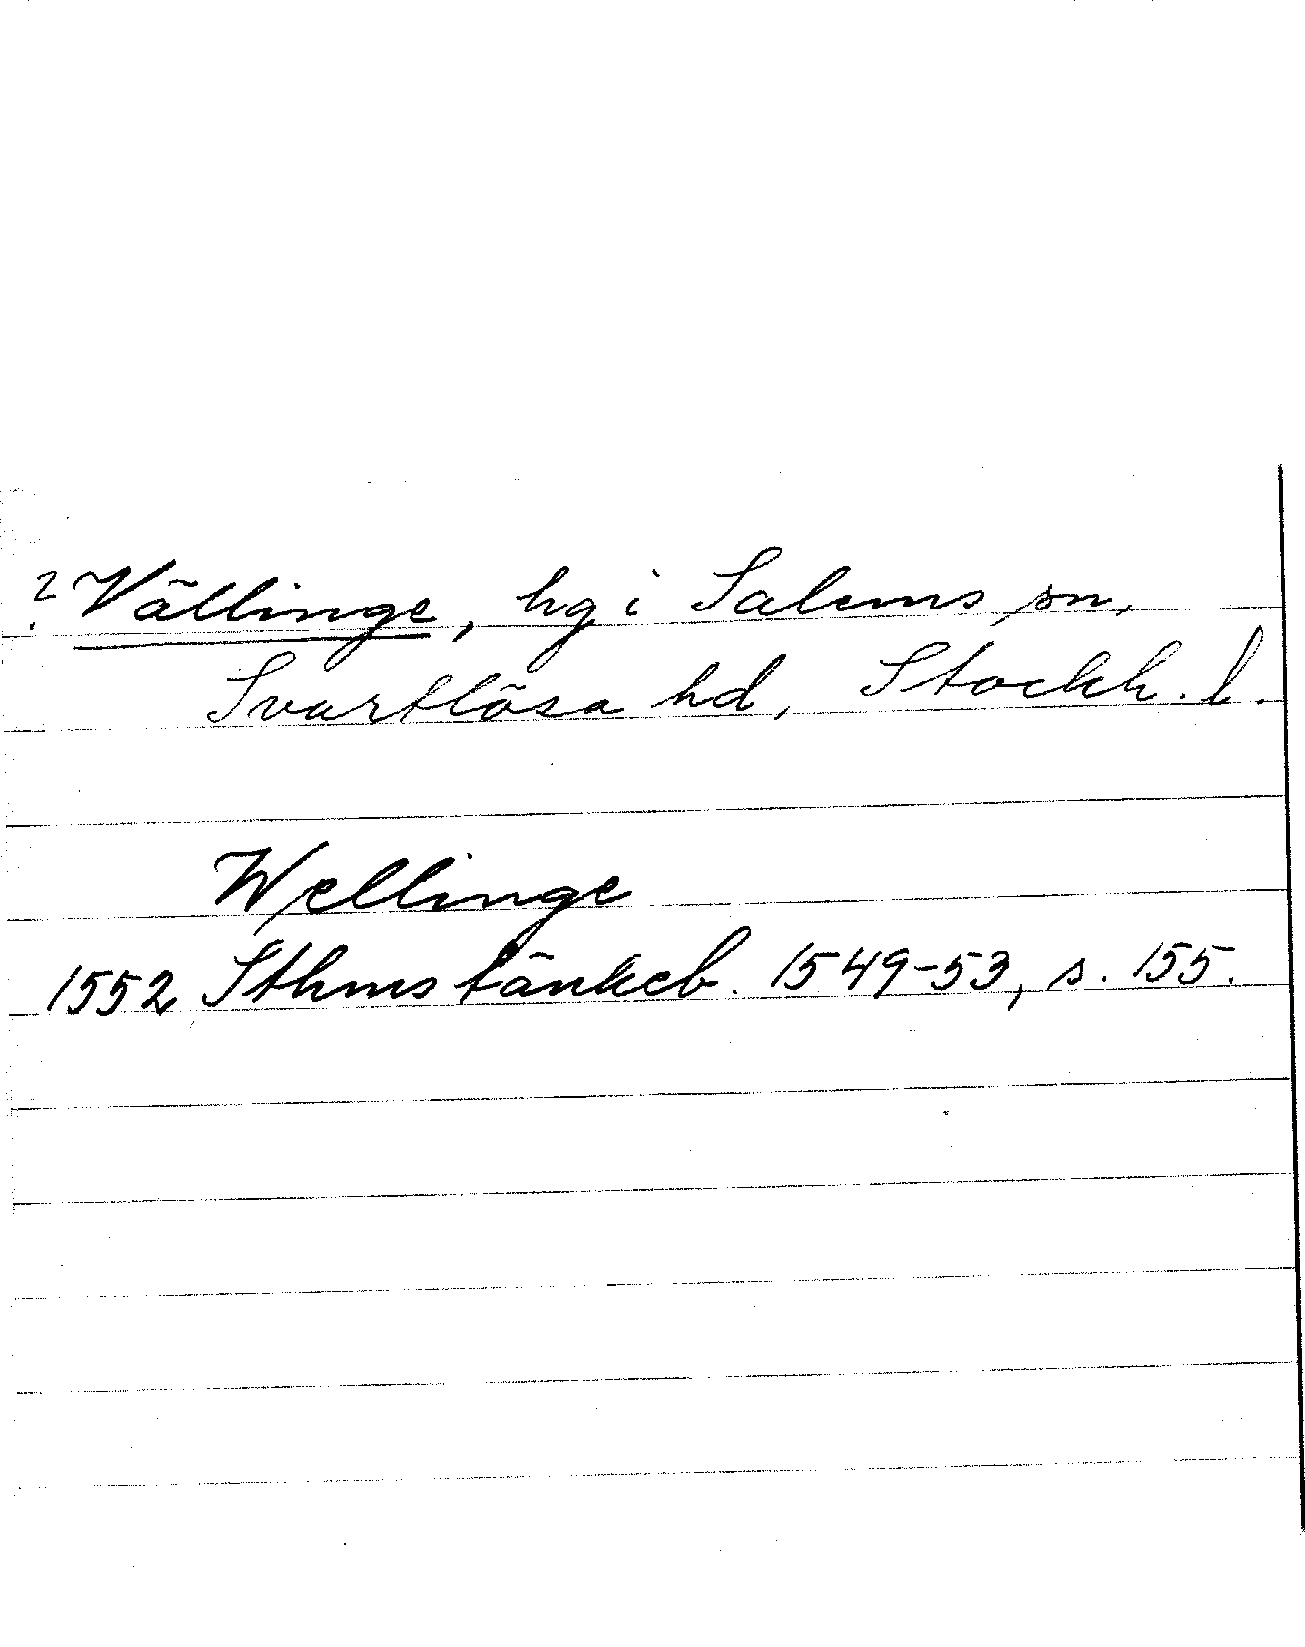 ? Vällinge, hg i Salems sn,
Svartlösa hd, Stockh. l.
Wellinge
1552 Sthms tänkeb. 1549-53, s. 155.